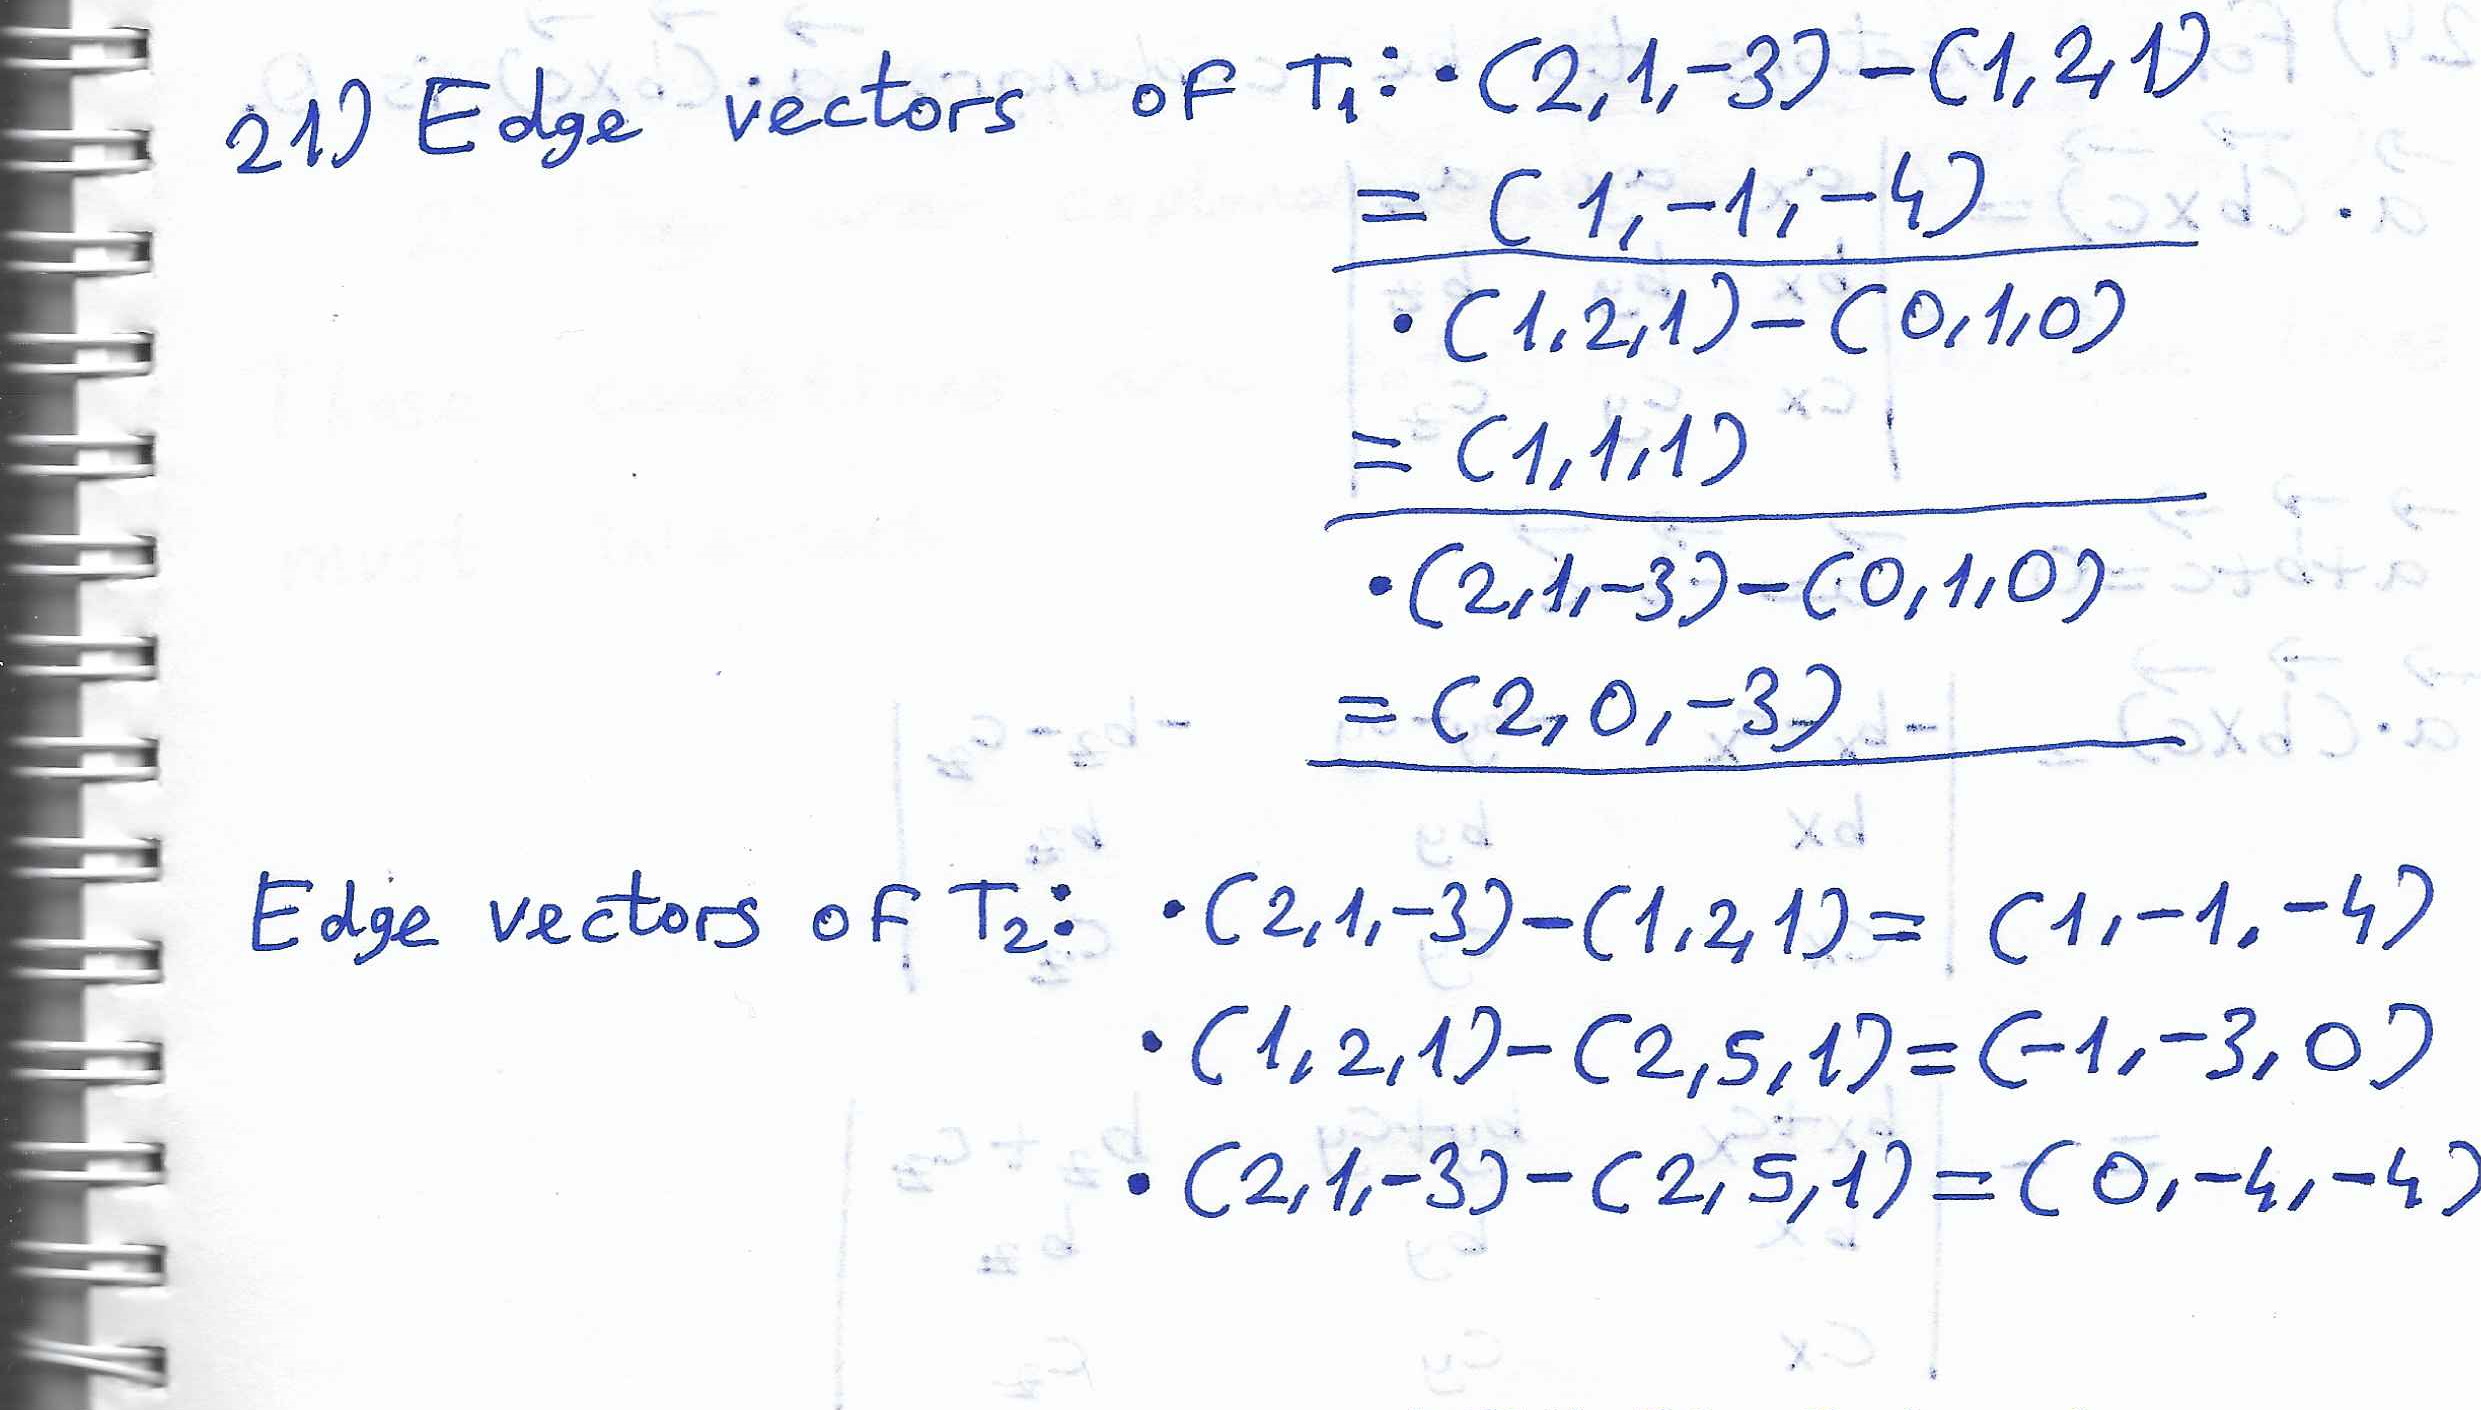 21) Edge vectors of T₁: • (2,1,-3) - (1,2,1)
= (1,-1,-4)
• (1,2,1) - (0,1,0)
= (1,1,1)
• (2,1,-3) - (0,1,0)
= (2,0,-3)
Edge vectors of T₂: • (2,1,-3) - (1,2,1) = (1,-1,-4)
• (1,2,1) - (2,5,1) = (-1,-3,0)
• (2,1,-3) - (2,5,1) = (0,-4,-4)